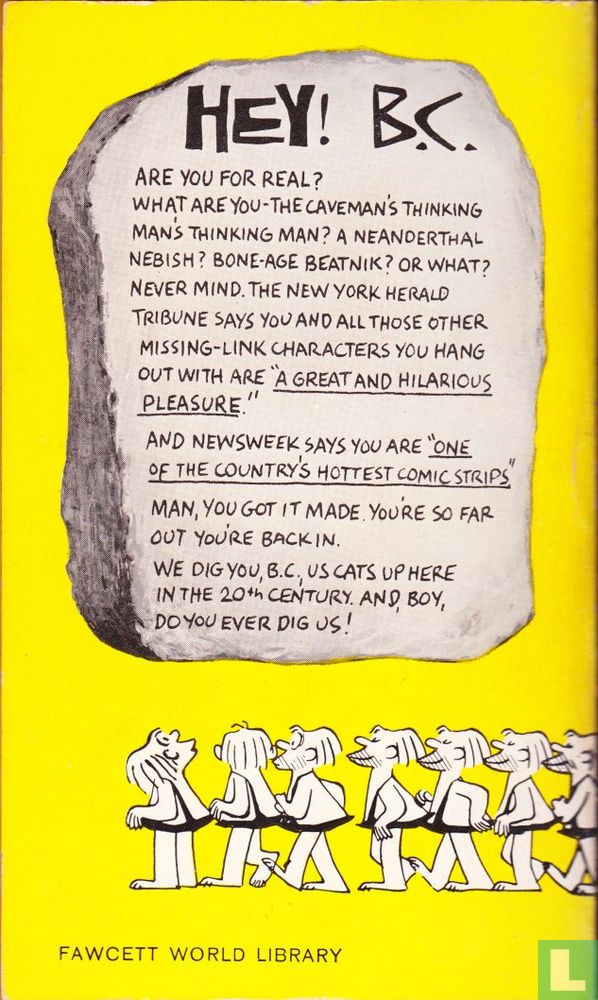 HEY! B.C.
ARE YOU FOR REAL?
WHAT ARE YOU-THE CAVEMAN'S THINKING
MAN'S THINKING MAN? A NEANDERTHAL
NEBISH? BONE-AGE BEATNIK? OR WHAT?
NEVER MIND. THE NEW YORK HERALD
TRIBUNE SAYS YOU AND ALL THOSE OTHER
MISSING-LINK CHARACTERS YOU HANG
OUT WITH ARE "A GREAT AND HILARIOUS
PLEASURE."
AND NEWSWEEK SAYS YOU ARE "ONE
OF THE COUNTRY'S HOTTEST COMIC STRIPS"
MAN, YOU GOT IT MADE. YOU'RE SO FAR
OUT YOU'RE BACK IN.
WE DIG YOU, B.C., US CATS UP HERE
IN THE 20th CENTURY. AND, BOY,
DO YOU EVER DIG US!
FAWCETT WORLD LIBRARY
L